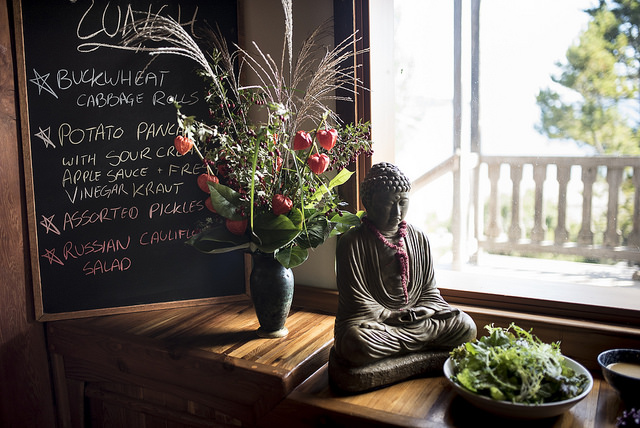 LUNCH
BUCKWHEAT
CABBAGE ROLLS
POTATO
WITH SOUR
APPLE SAUCE +
VINEGAR KRAUT
ASSORTED PICKLES
RUSSIAN
SALAD